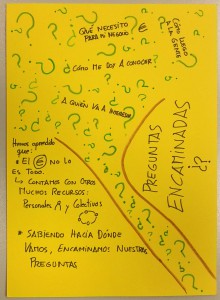 QUÉ NECESITO
PARA MI NEGOCIO €
CÓMO LLEGO
A LA GENTE
CÓMO ME DOY A CONOCER?
A QUIÉN VA A INTERESAR
PREGUNTAS
ENCAMINADAS
¿?
Hemos aprendido
que:
• El € NO LO
ES TODO.
↳ CONTAMOS CON OTROS
MUCHOS RECURSOS:
Personales y Colectivos
• SABIENDO HACÍA DÓNDE
VAMOS, ENCAMINAMOS NUESTRAS
PREGUNTAS